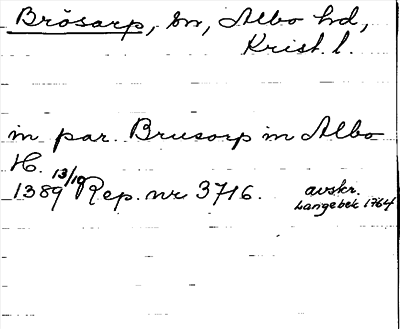 Brösarp, sn, Albo hd,
Krist. l.
in par. Brusorp in Albo
H.
1389 13/10 Rep. nr 3716. avskr.
Langebek 1764